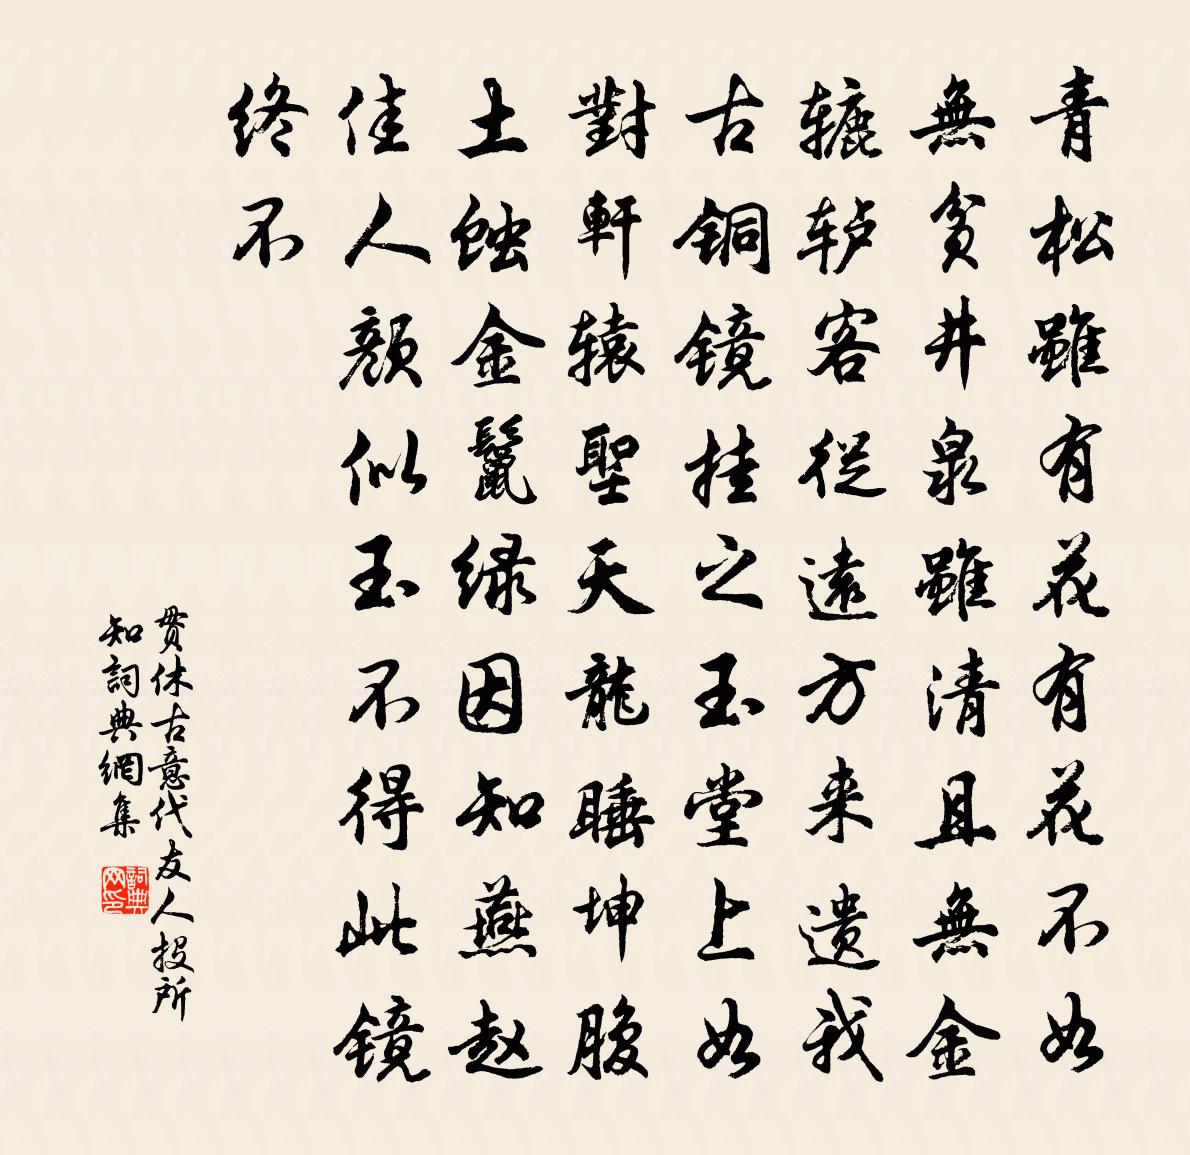 青松雖有花有花不如
無貧井泉雖清且無金
辘轳客從遠方来遗我
古铜镜挂之玉堂上如
對軒辕聖天龍睡坤腹
土蚀金鬣绿因知燕赵
佳人颜似玉不得此镜
终不
贯休古意代友人投所
知詞典網集
詞典网印